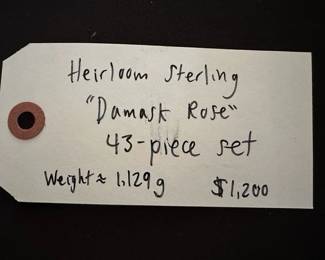 Heirloom Sterling
"Damask Rose"
43-piece set
Weight ≈ 1,129 g $1,200